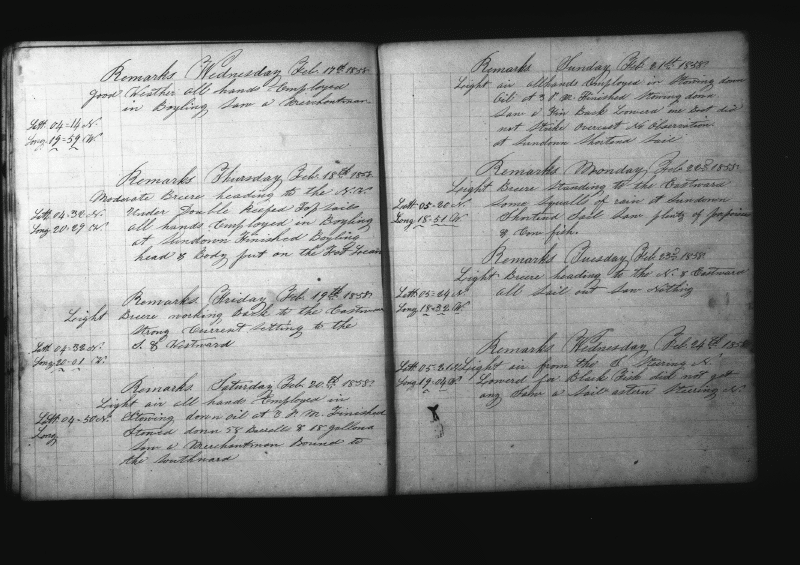 Remarks Wednesday Feb. 17th 1858
Good Weather all hands Employed
in Boyling Saw a Merchantman
Latt. 04=14 N.
Long. 19=59 W.
Remarks Thursday Feb. 18th 1858
Moderate Breeze heading to the N. W.
Latt. 04=32 N. Under Double Reefed Top Sails
Long. 20=29 W. all hands Employed in Boyling
at Sundown Finished Boyling
head & Body put on the
Remarks Friday Feb. 19th 1858
Light Breeze working Back to the Eastward
Strong Current Sitting to the
Latt. 04=32 N. S. & Westward
Long. 20=01 W.
Remarks Saturday Feb. 20th 1858
Light air all hands Employed in
Latt. 04=50 N. Stowing down oil at 3 P. M. Finished
Long Stowed down 58 Barells & 18 gallons
Saw a Merchantman Bound to
the Southward
Remarks Sunday Feb. 21st 1858
Light air all hands Employed in Stowing down
Oil at 3 P. M. Finished Stowing down
Saw a Fin Back Lowered one Boat did
not Strike overcast No Observation
at Sundown Shortend Sail
Remarks Monday Feb 22d 1858
Light Breeze Standing to the Eastward
Latt. 05=20 N. Some Squalls of rain at Sundown
Long. 18=51 W. Shortend Sail Saw plenty of porpoises
& Cow fish.
Remarks Tuesday Feb 23d 1858
Light Breeze heading to the N. & Eastward
Latt. 05=24 N. all Sail out Saw Nothig
Long. 18=32 W.
Remarks Wednesday Feb 24th 1858
Latt. 05=21 N. Light air from the S. Steering N.
Long. 19=04 W. Lowered for Black Fish did not get
any Saw a Sail astern Steering N.